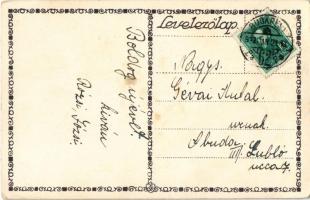 Levelezőlap
Boldog újévet
kíván
Rózsi Józsi
Nagys.
Gévai Antal
urnak
Óbuda
III. Lubló
ucca 7.